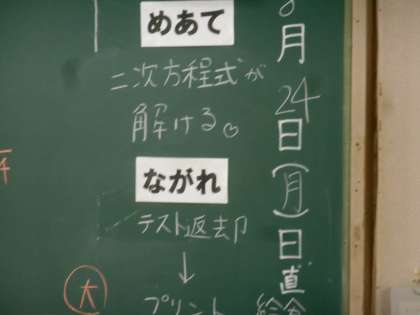 8月24日(月)日直
めあて
二次方程式が
解ける。
ながれ
テスト返却
↓
プリント
大